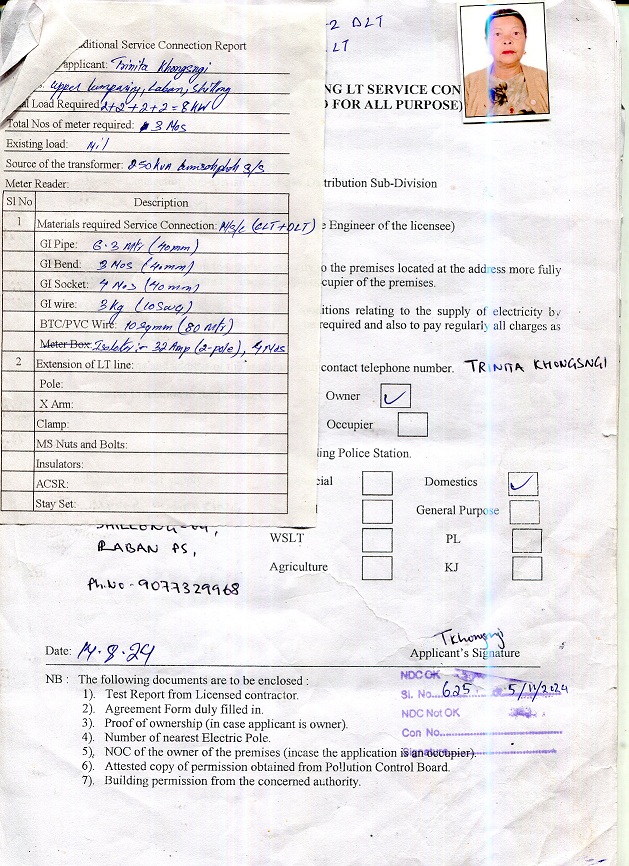 -2 DLT
LT
ditional Service Connection Report
applicant: Trinita Khongsngi
upper Lumparing, Laban, Shillong
Load Required 2+2+2+2 = 8 KW
Total Nos of meter required: 3 Nos
Existing load: Nil
Source of the transformer: 250kva S/S
Meter Reader:
Sl No Description
1 Materials required Service Connection: M/s/c (CLT+DLT)
GI Pipe: 6.3 Mtr (40mm)
GI Bend: 3 Nos (40mm)
GI Socket: 4 Nos (40mm)
GI wire: 3 Kg (10swg)
BTC/PVC Wire: 10 sqmm (80 Mtr)
Meter Box Isolator :- 32 Amp (2-pole), 4 Nos
2 Extension of LT line:
Pole:
X Arm:
Clamp:
MS Nuts and Bolts:
Insulators:
ACSR:
Stay Set:
NG LT SERVICE CON
D FOR ALL PURPOSE)
tribution Sub-Division
e Engineer of the licensee)
o the premises located at the address more fully
cupier of the premises.
itions relating to the supply of electricity by
required and also to pay regularly all charges as
contact telephone number. TRINITA KHONGSNGI
Owner
Occupier
ing Police Station.
cial Domestics
l General Purpose
WSLT PL
Agriculture KJ
SHILLONG-04,
LABAN PS,
Ph.No - 9077329968
Date: 14.8.24
TKhongngi
Applicant's Signature
NB : The following documents are to be enclosed :
1). Test Report from Licensed contractor.
2). Agreement Form duly filled in.
3). Proof of ownership (in case applicant is owner).
4). Number of nearest Electric Pole.
5), NOC of the owner of the premises (incase the application is an occupier).
6). Attested copy of permission obtained from Pollution Control Board.
7). Building permission from the concerned authority.
NDC OK
Sl. No. 625 5/11/2024
NDC Not OK
Con No.
Signature